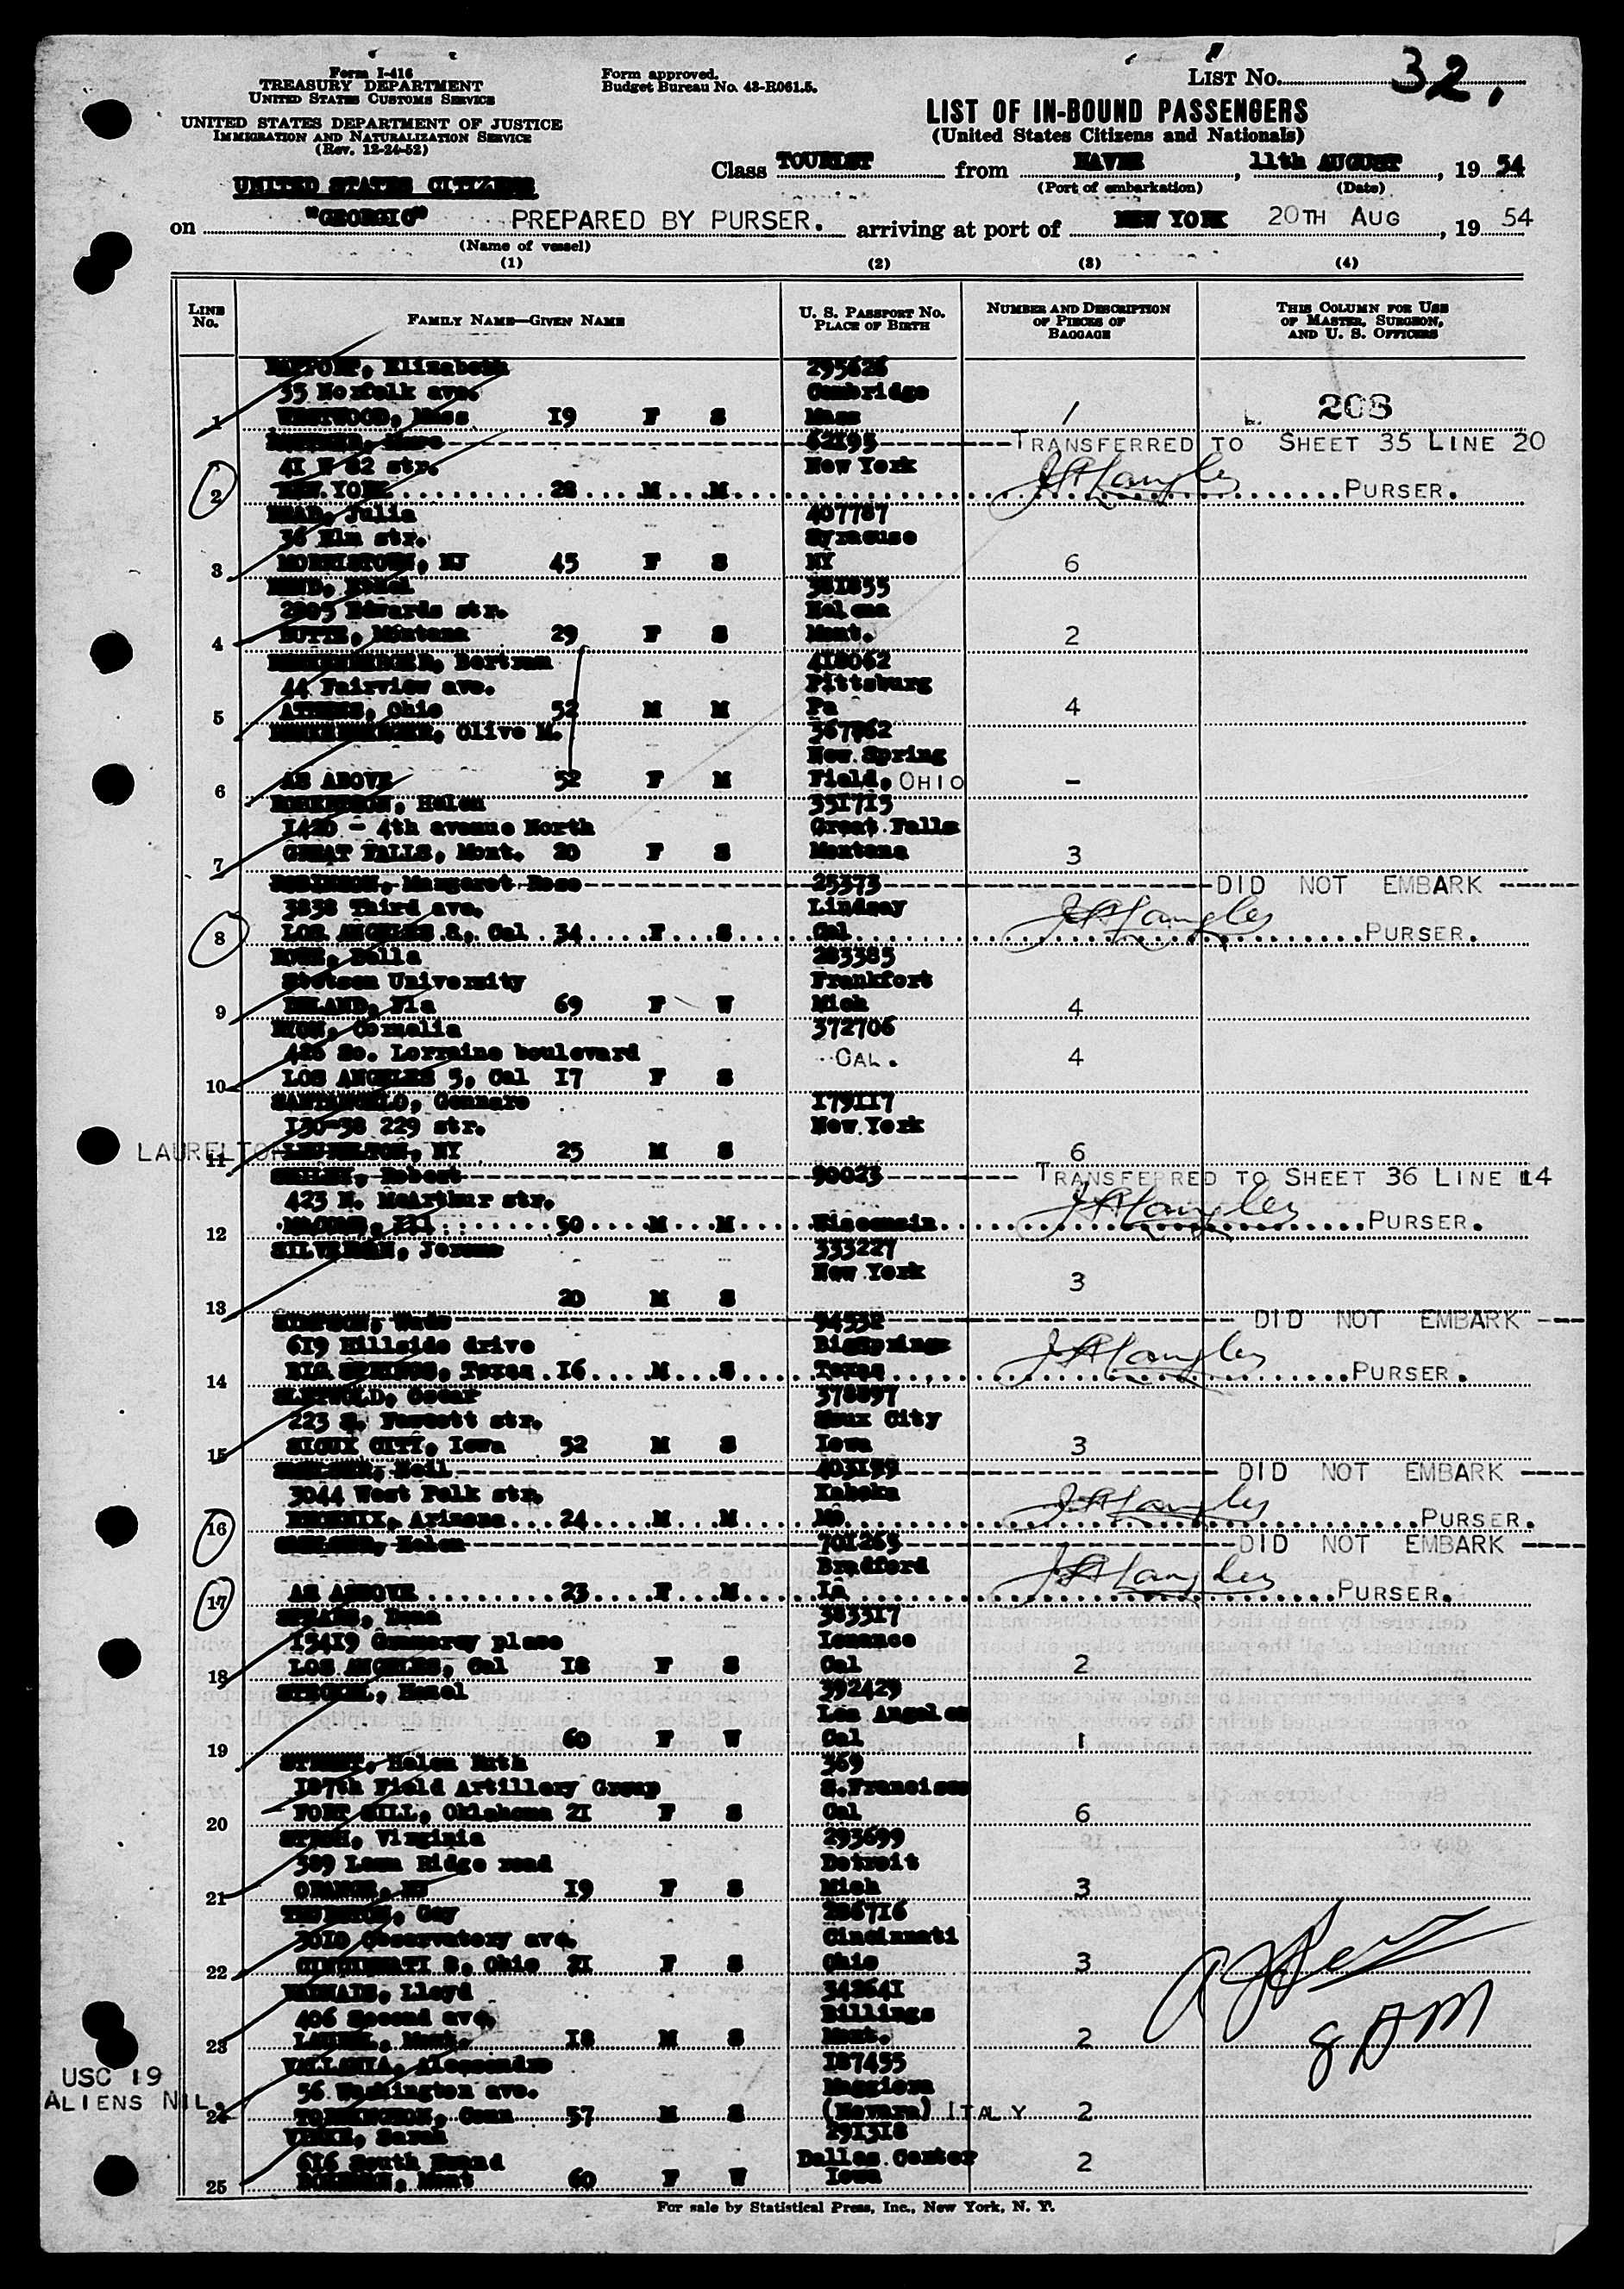 Form I-416
TREASURY DEPARTMENT
UNITED STATES CUSTOMS SERVICE
UNITED STATES DEPARTMENT OF JUSTICE
IMMIGRATION AND NATURALIZATION SERVICE
(Rev. 12-24-52)
Form approved.
Budget Bureau No. 43-R061.5.
LIST No. 32,
LIST OF IN-BOUND PASSENGERS
(United States Citizens and Nationals)
Class TOURIST from HAVRE, 11th AUGUST, 19 54
(Port of embarkation) (Date)
UNITED STATES CITIZENS
on "GEORGIC" PREPARED BY PURSER. arriving at port of NEW YORK 20TH AUG, 19 54
(Name of vessel)
(1) (2) (3) (4)
LINE No. FAMILY NAME—GIVEN NAME U. S. PASSPORT NO. PLACE OF BIRTH NUMBER AND DESCRIPTION OF PIECES OF BAGGAGE THIS COLUMN FOR USE OF MASTER, SURGEON, AND U. S. OFFICERS
Elizabeth 295626
35 Norfolk ave. Cambridge
1 WESTWOOD, Mass 19 F S Mass 1 208
62195 TRANSFERRED TO SHEET 35 LINE 20
41 W 82 str. New York
2 NEW YORK 28 M M PURSER.
READ, Julia 407787
36 Elm str. Syracuse
3 MORRISTOWN, NJ 45 F S NY 6
381855
2805 Edwards str. Helena
4 BUTTE, Montana 29 F S Mont. 2
Bertram 418062
44 Fairview ave. Pittsburg
5 ATHENS, Ohio 52 M M Pa 4
Olive M. 367862
New Spring
6 AS ABOVE 52 F M Field, OHIO -
ROBERTSON, Helen 351715
1420 - 4th avenue North Great Falls
7 GREAT FALLS, Mont. 20 F S Montana 3
ROBINSON, Margaret Rose 25373 DID NOT EMBARK
3838 Third ave. Lindsay
8 LOS ANGELES 8, Cal 34 F S Cal PURSER.
ROWE, Della 283385
Stetson University Frankfort
9 DELAND, Fla 69 F W Mich 4
RYON, Cornelia 372706
426 So. Lorraine boulevard CAL. 4
10 LOS ANGELES 5, Cal 17 F S
SANTANGELO, Gennaro 179117
130-38 229 str. New York
LAURELTON 11 NY 25 M S 6
Robert 90023 TRANSFERRED TO SHEET 36 LINE 14
423 N. McArthur str.
12 MACOMB, Ill 50 M M Wisconsin PURSER.
SILVERMAN, Jerome 333227
New York
13 20 M S 3
SIMPSON, Wade 94532 DID NOT EMBARK
619 Hillside drive BigSprings
14 BIG SPRINGS, Texas 16 M S Texas PURSER.
Oscar 378897
223 S. Fawcett str. Sioux City
15 SIOUX CITY, Iowa 52 M S Iowa 3
Neil 403199 DID NOT EMBARK
3044 West Polk str. Kahoka
16 PHOENIX, Arizona 24 M M Mo PURSER.
Helen 701265 DID NOT EMBARK
Bradford
17 AS ABBOVE 23 F M Ia PURSER.
SPEARS, Dona 383317
15419 Gramercy place
18 LOS ANGELES, Cal 18 F S Cal 2
Hazel 392429
Los Angeles
19 60 F W Cal 1
STREET, Helen Ruth 369
187th Field Artillery Group S.Francisco
20 FORT SILL, Oklahoma 21 F S Cal 6
Virginia 293699
389 Ridge road Detroit
21 ORANGE, NJ 19 F S Mich 3
THURSTON, Gay 286716
3010 Observatory ave. Cincinnati
22 CINCINNATI 8, Ohio 21 F S Ohio 3
Lloyd 342641
406 Second ave. Billings
23 LAUREL, Mont. 18 M S Mont. 2
8 AM
USC 19
ALIENS NIL.
VALLANIA, Alessandro 187455
56 Washington ave. Maggiora
24 TORRINGTON, Conn 57 M S (Novara) ITALY 2
Sarah 291318
616 South Dallas Center
25 BOZEMAN, Mont 60 F W Iowa 2
For sale by Statistical Press, Inc., New York, N. Y.